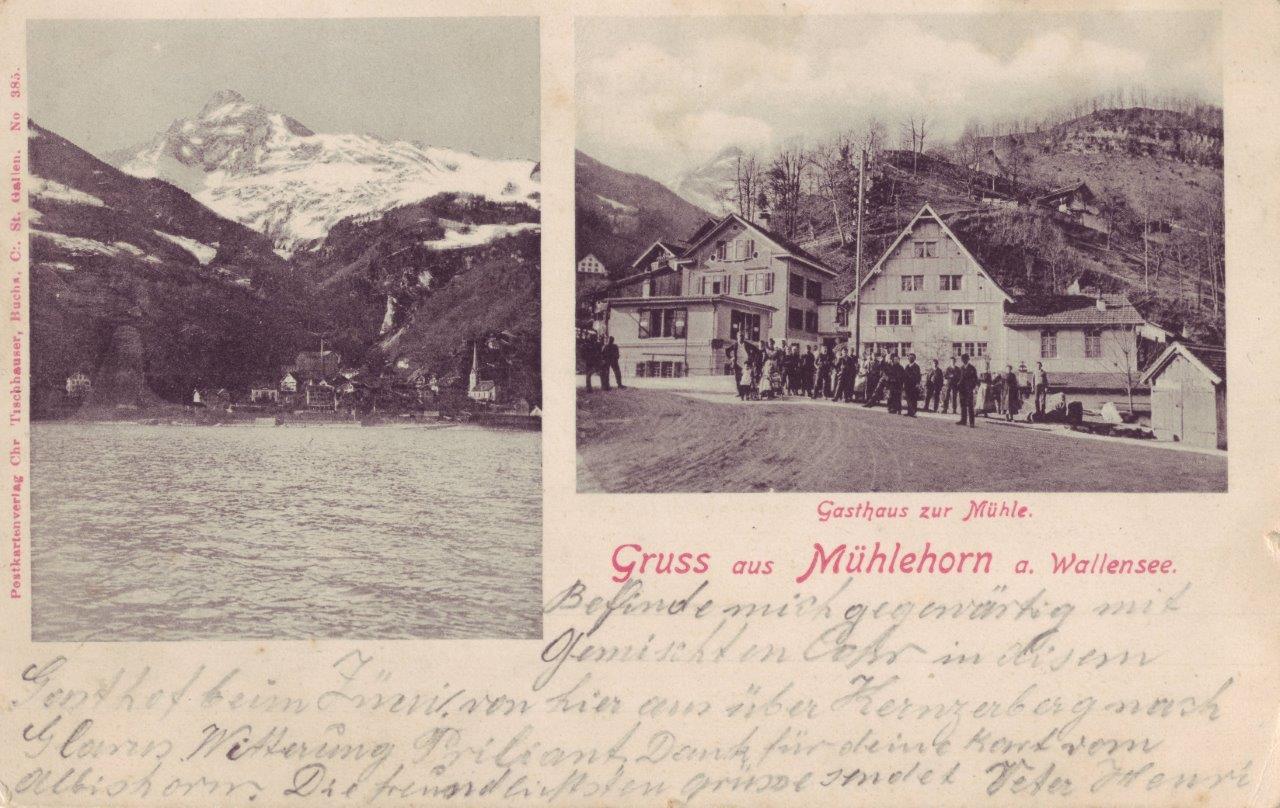 Postkartenverlag Chr Tischhauser, Buchs, Ct. St. Gallen. No 385.
Gasthaus zur Mühle.
Gruss aus Mühlehorn a. Wallensee.
Befinde mich gegewärtig mit
Gemischten Cohr in disem
Gasthof beim Züni, von hier aus über Kernzerberg nach
Glarus Witterung Priliant, Dank für deine Kart vom
Albishorn. Die freundlichsten grüsse sendet Veter Henri